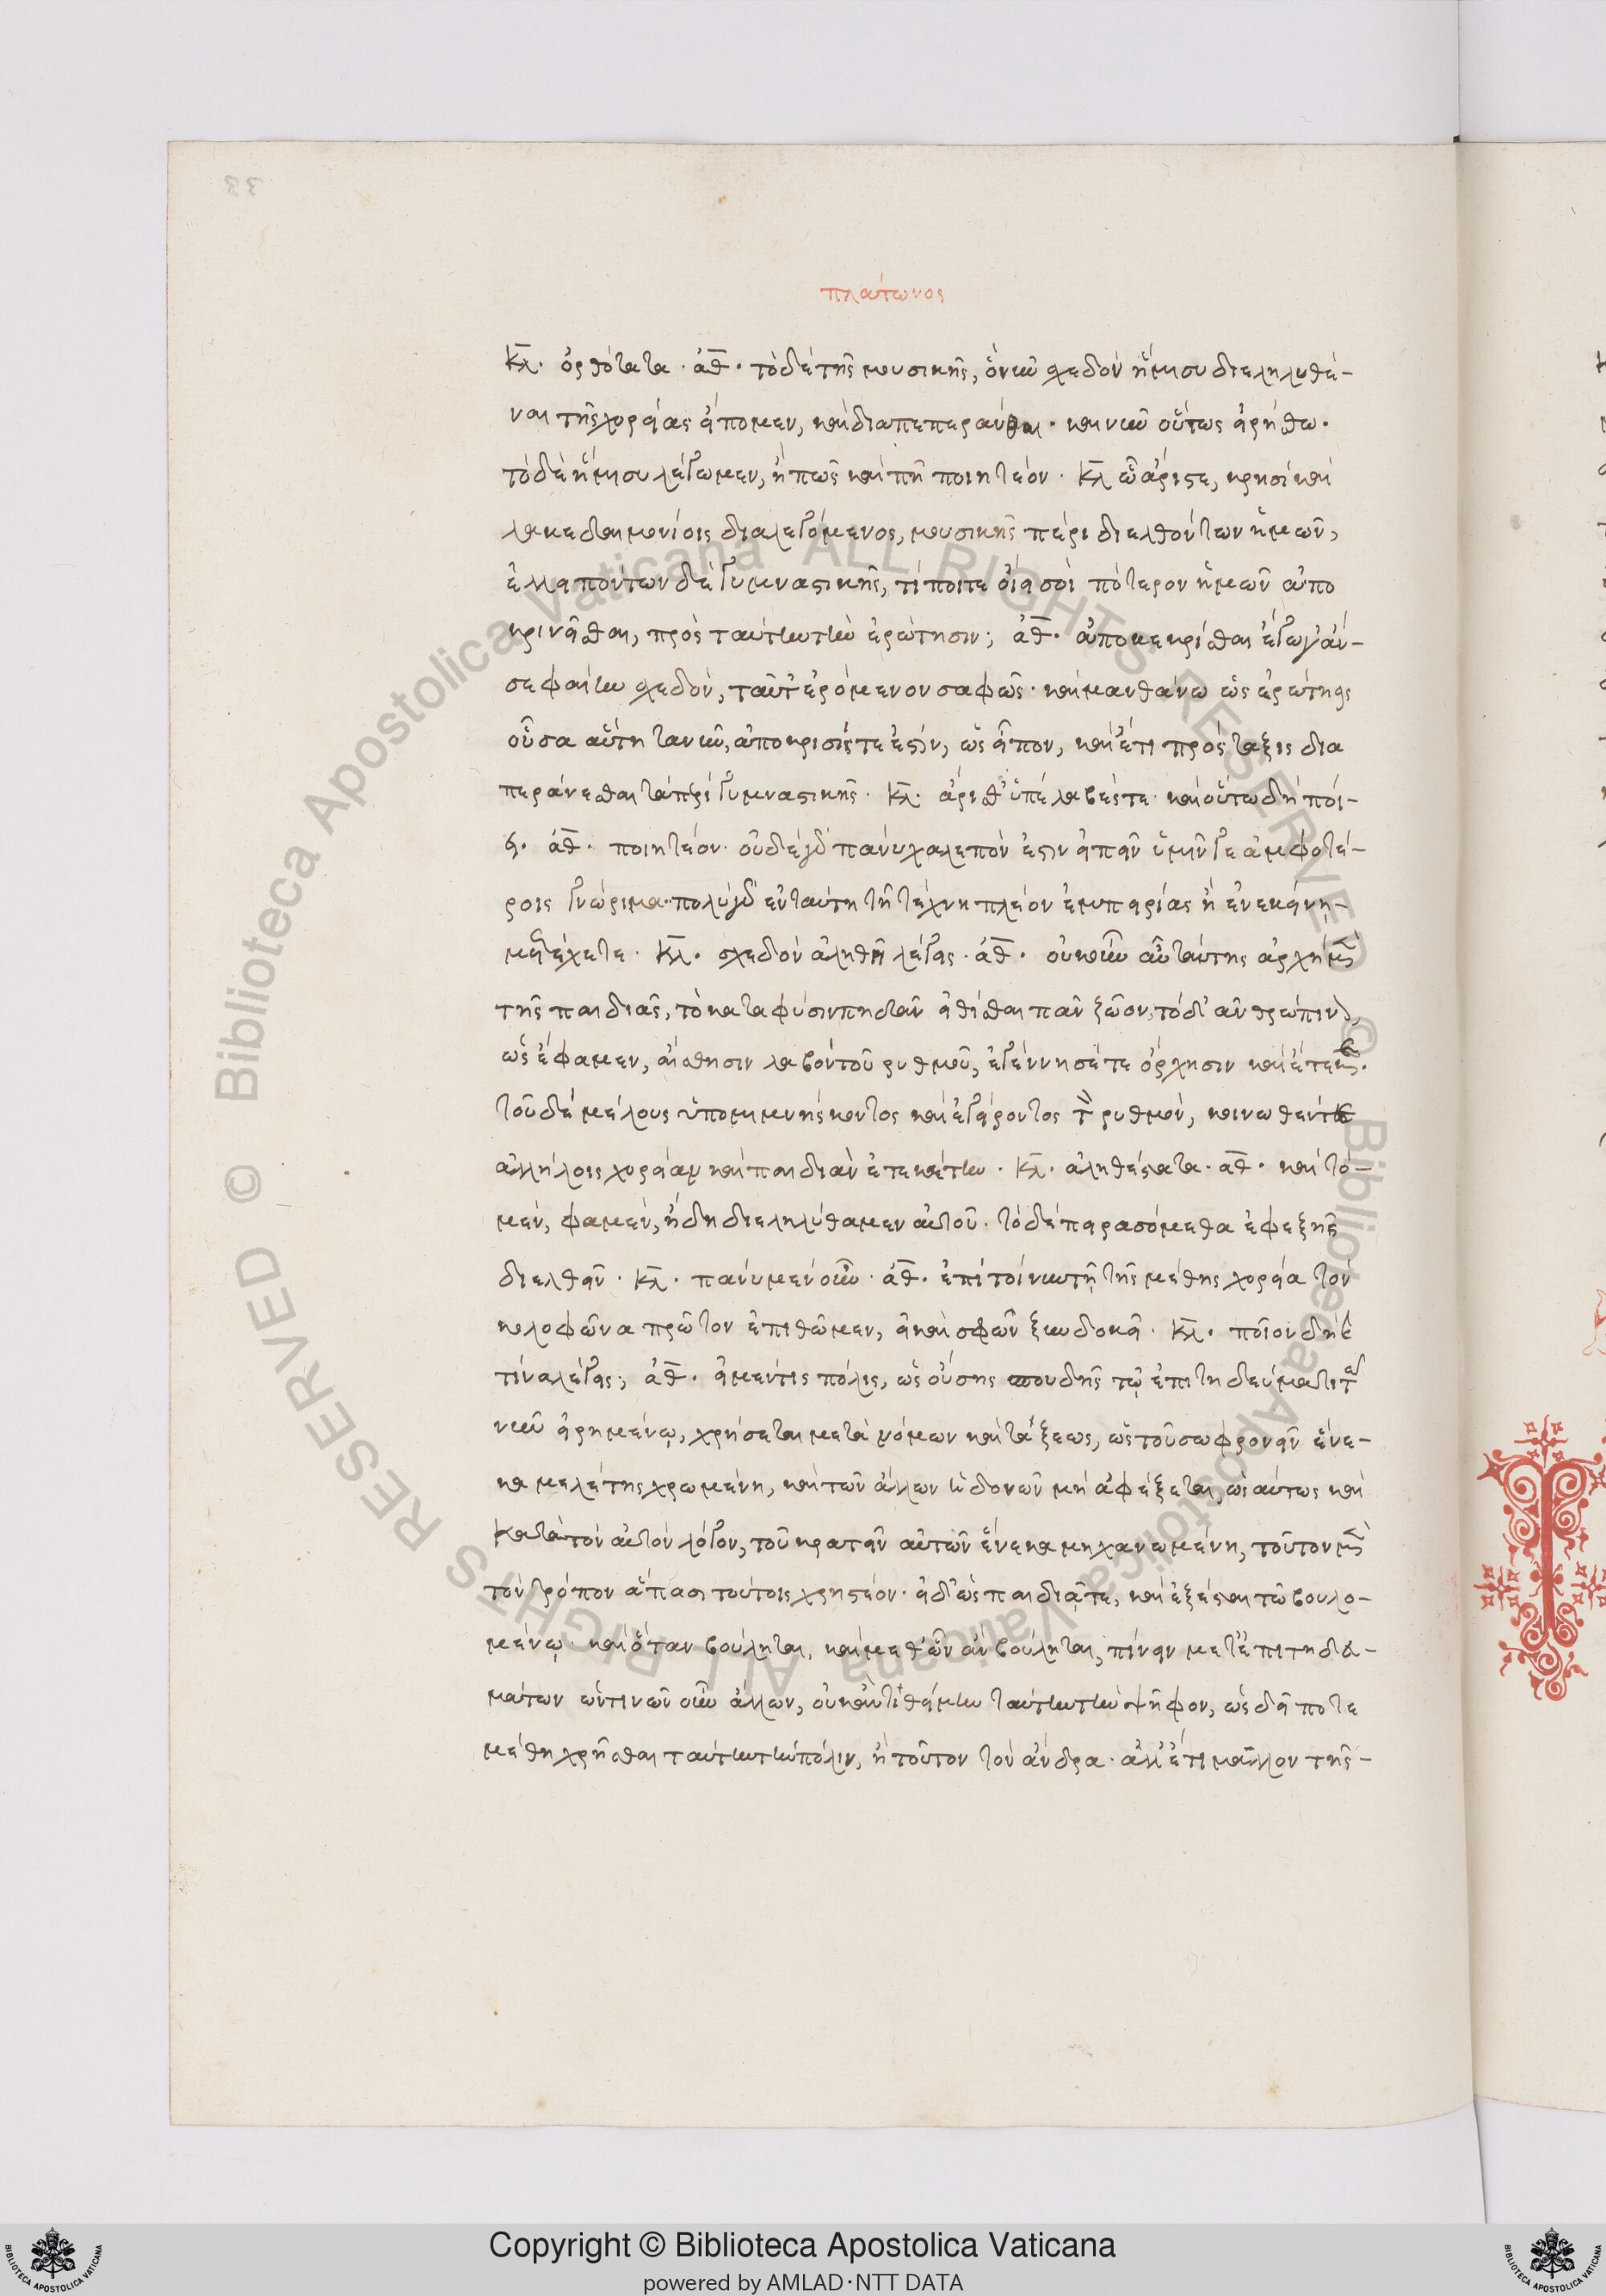 33
πλάτωνος
κλ. ὀρθότατα. ἀθ. τὸ δὲ τῆς μουσικῆς, ὃ νῦν σχεδὸν ἥμισυ διεληλυθέ-
ναι τῆς χορείας εἴπομεν, καὶ διαπεπεράνθαι. καὶ νῦν οὕτως εἰρήσθω.
τὸ δὲ ἥμισυ λέγωμεν, ἢ πῶς καὶ πῆ ποιητέον. κλ ὦ ἄριστε, κρησὶ καὶ
λακεδαιμονίοις διαλεγόμενος, μουσικῆς πέρι διελθόντων ἡμῶν,
ἐλλειπόντων δὲ γυμναστικῆς, τί ποτε οἴει σοὶ πότερον ἡμῶν ἀπο
κρινεῖσθαι, πρὸς ταύτην τὴν ἐρώτησιν; ἀθ. ἀποκεκρίσθαι ἔγωγ' ἄν-
σε φαίην σχεδὸν, ταῦτ' ἐρόμενον σαφῶς. καὶ μανθάνω ὡς ἐρώτησις
οὖσα αὕτη τανῦν, ἀπόκρισίς τε ἐστὶν, ὡς εἶπον, καὶ ἔτι πρόσταξις δια
περάνεσθαι τὰ περὶ γυμναστικῆς. κλ. ἄρισθ' ὑπέλαβές τε. καὶ οὕτω δὴ ποί-
ει. ἀθ. ποιητέον. οὐδὲ γὰρ πάνυ χαλεπόν ἐστιν εἰπεῖν ὑμῖν γε ἀμφοτέ-
ροις γνώριμα. πολὺ γὰρ ἐν ταύτη τῆ τέχνη πλέον ἐμπειρίας ἢ ἐν ἐκείνη-
μετέχετε. κλ. σχεδὸν ἀληθῆ λέγεις. ἀθ. οὐκοῦν αὖ ταύτης ἀρχὴ μὲν
τῆς παιδιᾶς, τὸ κατὰ φύσιν πηδᾶν εἰθίσθαι πᾶν ζῶον, τὸ δ' ἀνθρώπινον,
ὡς ἔφαμεν, αἴσθησιν λαβὸν τοῦ ῥυθμοῦ, ἐγέννησέ τε ὄρχησιν καὶ ἔτεκεν.
τοῦ δὲ μέλους ὑπομιμνήσκοντος καὶ ἐγείροντος τὸν ῥυθμὸν, κοινωθέντ'
ἀλλήλοις χορείαν καὶ παιδιὰν ἐτεκέτην. κλ. ἀληθέστατα. ἀθ. καὶ τὸ-
μὲν, φαμὲν, ἤδη διεληλύθαμεν αὐτοῦ. τὸ δὲ πειρασόμεθα ἐφεξῆς
διελθεῖν. κλ. πάνυ μὲν οὖν. ἀθ. ἐπὶ τοίνυν τῆ τῆς μέθης χορεία τὸν
κολοφῶνα πρῶτον ἐπιθῶμεν, εἰ καὶ σφῶν ξυνδοκεῖ. κλ. ποῖον δὴ καὶ
τίνα λέγεις; ἀθ. εἰ μέν τις πόλις, ὡς οὔσης σπουδῆς τῷ ἐπιτηδεύματι τῷ
νῦν εἰρημένῳ, χρήσεται μετὰ νόμων καὶ τάξεως, ὡς τοῦ σωφρονεῖν ἕνε-
κα μελέτης χρωμένη, καὶ τῶν ἄλλων ἡδονῶν μὴ ἀφέξεται, ὡσαύτως καὶ
κατὰ τὸν αὐτὸν λόγον, τοῦ κρατεῖν αὐτῶν ἕνεκα μηχανωμένη, τοῦτον μὲν
τὸν τρόπον ἅπασι τούτοις χρηστέον. εἰ δ' ὡς παιδιᾷ τε, καὶ ἐξέσται τῷ βουλο-
μένῳ. καὶ ὅταν βούληται, καὶ μεθ' ὧν ἂν βούληται, πίνειν μετ' ἐπιτηδευ-
μάτων ὡντινῶν οὖν ἄλλων, οὐκ ἂν τιθείμην ταύτην τὴν ψῆφον, ὡς δεῖ ποτε
μέθη χρῆσθαι ταύτην τὴν πόλιν, ἢ τοῦτον τὸν ἄνδρα. ἀλλ' ἔτι μᾶλλον τῆς-
Copyright © Biblioteca Apostolica Vaticana
powered by AMLAD·NTT DATA